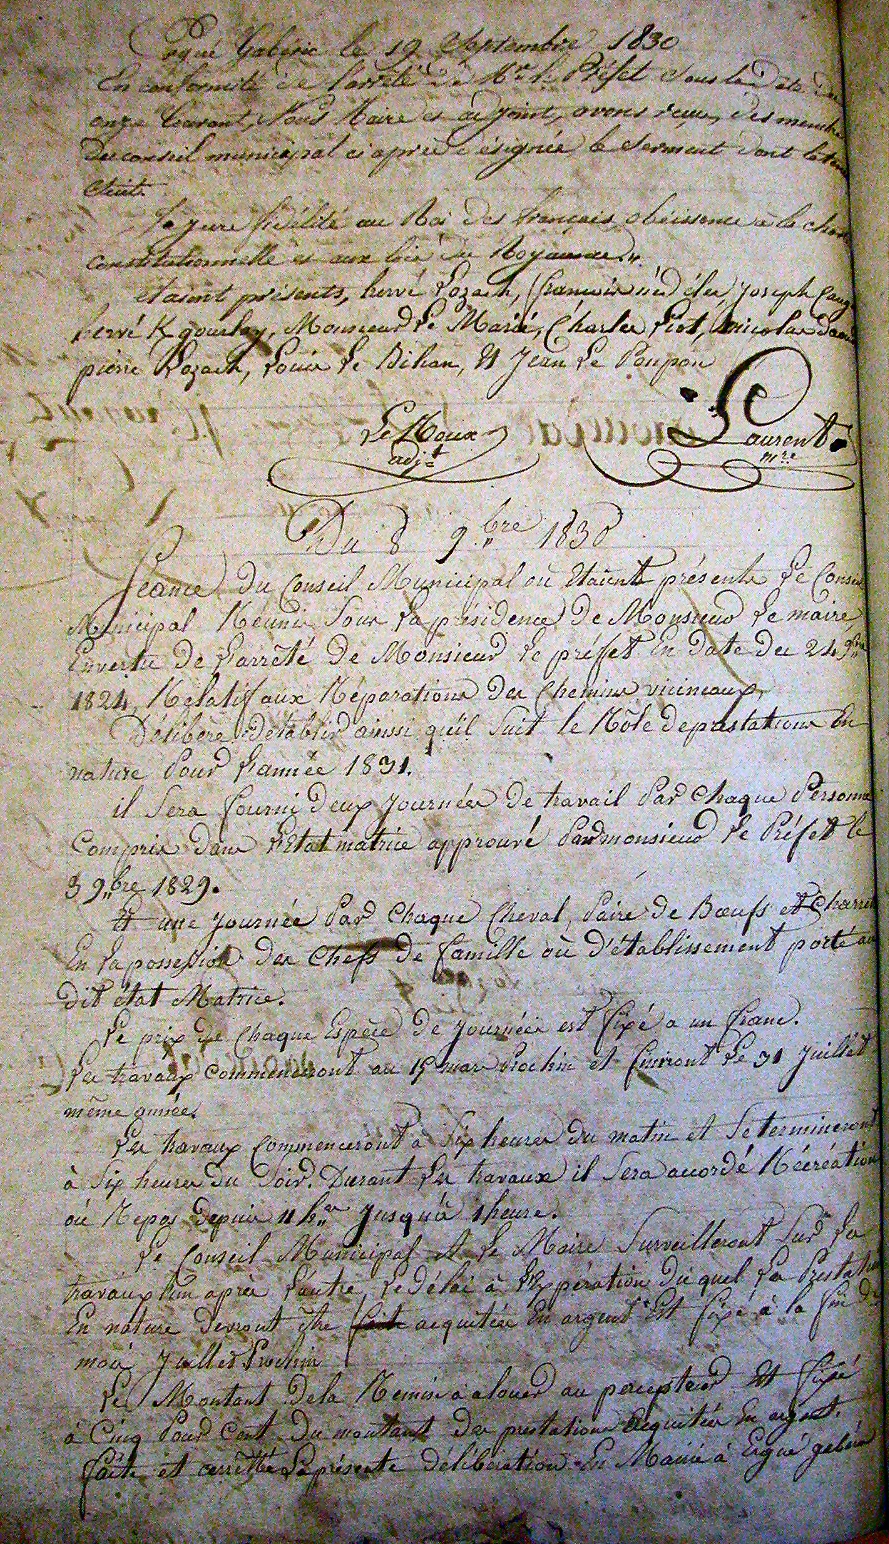 Ergué Gabéric le 19 Septembre 1830
En conformité de l'arrêté de Mr le Préfet Sous la Date du
onze Courant, Nous Maire et adjoint, avons reçu, des membres
du conseil municipal ci après désignée le Serment dont la teneur
Suit.
Je jure fidélité au Roi des français, obéissence a la charte
constitutionnelle et aux lois du Royaume.
étaient présents, hervé Lozach, françois nédélec, Joseph
hervé K gourlay, Monsieur Le Maire, Charles Riot, nicolas
pierre Lozach, Louis Le Bihan, Et Jean Le Poupon
Le Roux Laurent
adjt mre
Du 8 9.bre 1830
Séance Du Conseil Municipal où Etaient présents Le Conseil
Municipal Réunie Sous La présidence De Monsieur Le maire
Envertu De L'arrêté De Monsieur Le préffet En Date du 24 9bre
1824, Rélatif aux Réparations des Chemins vicineaux,
Délibère d'établir ainssi qu'il Suit le Rôle deprestations En
nature Pour L'année 1831.
il Sera fourni deux Journées De travail Par Chaque Personne
Compris Dans L'Etat matrice approuvé Par monsieur Le Préfett le
3 9.bre 1829.
Et une Journée Par Chaque Cheval, Paire De Bœufs et Charrette
En La possession des Chefs De famille où D'établissement porté au
dit état Matrice.
Le prix De Chaque Espèce De Journée est fixé a un franc.
Les travaux Commenceront au 15 mars Prochin et finiront Le 31 Juillét
même année.
Les travaux Commenceront à Six heures Du matin et Se termineront
à Six heures Du Soir. Durant Les travaux il Sera accordé Récréation
où Repos Depuis 11 hres Jusqu'à 1 heure.
Le Conseil Municipal Et Le Maire Surveilleront Sur La
travaux l'un après L'autre, Le Délai à L'Expération Du quel La Prestation
En nature Devront être fait acquitée En argent Est fixé à la fin Du
mois Juillet Prochin
Le Montant De la Remise a alouer au percepteur Et fixé
à Cinq Pour Cent Du montant Des prestations acquitées En argent.
faite et arrêtté La présente délibération En Mairie à Ergué gabéric